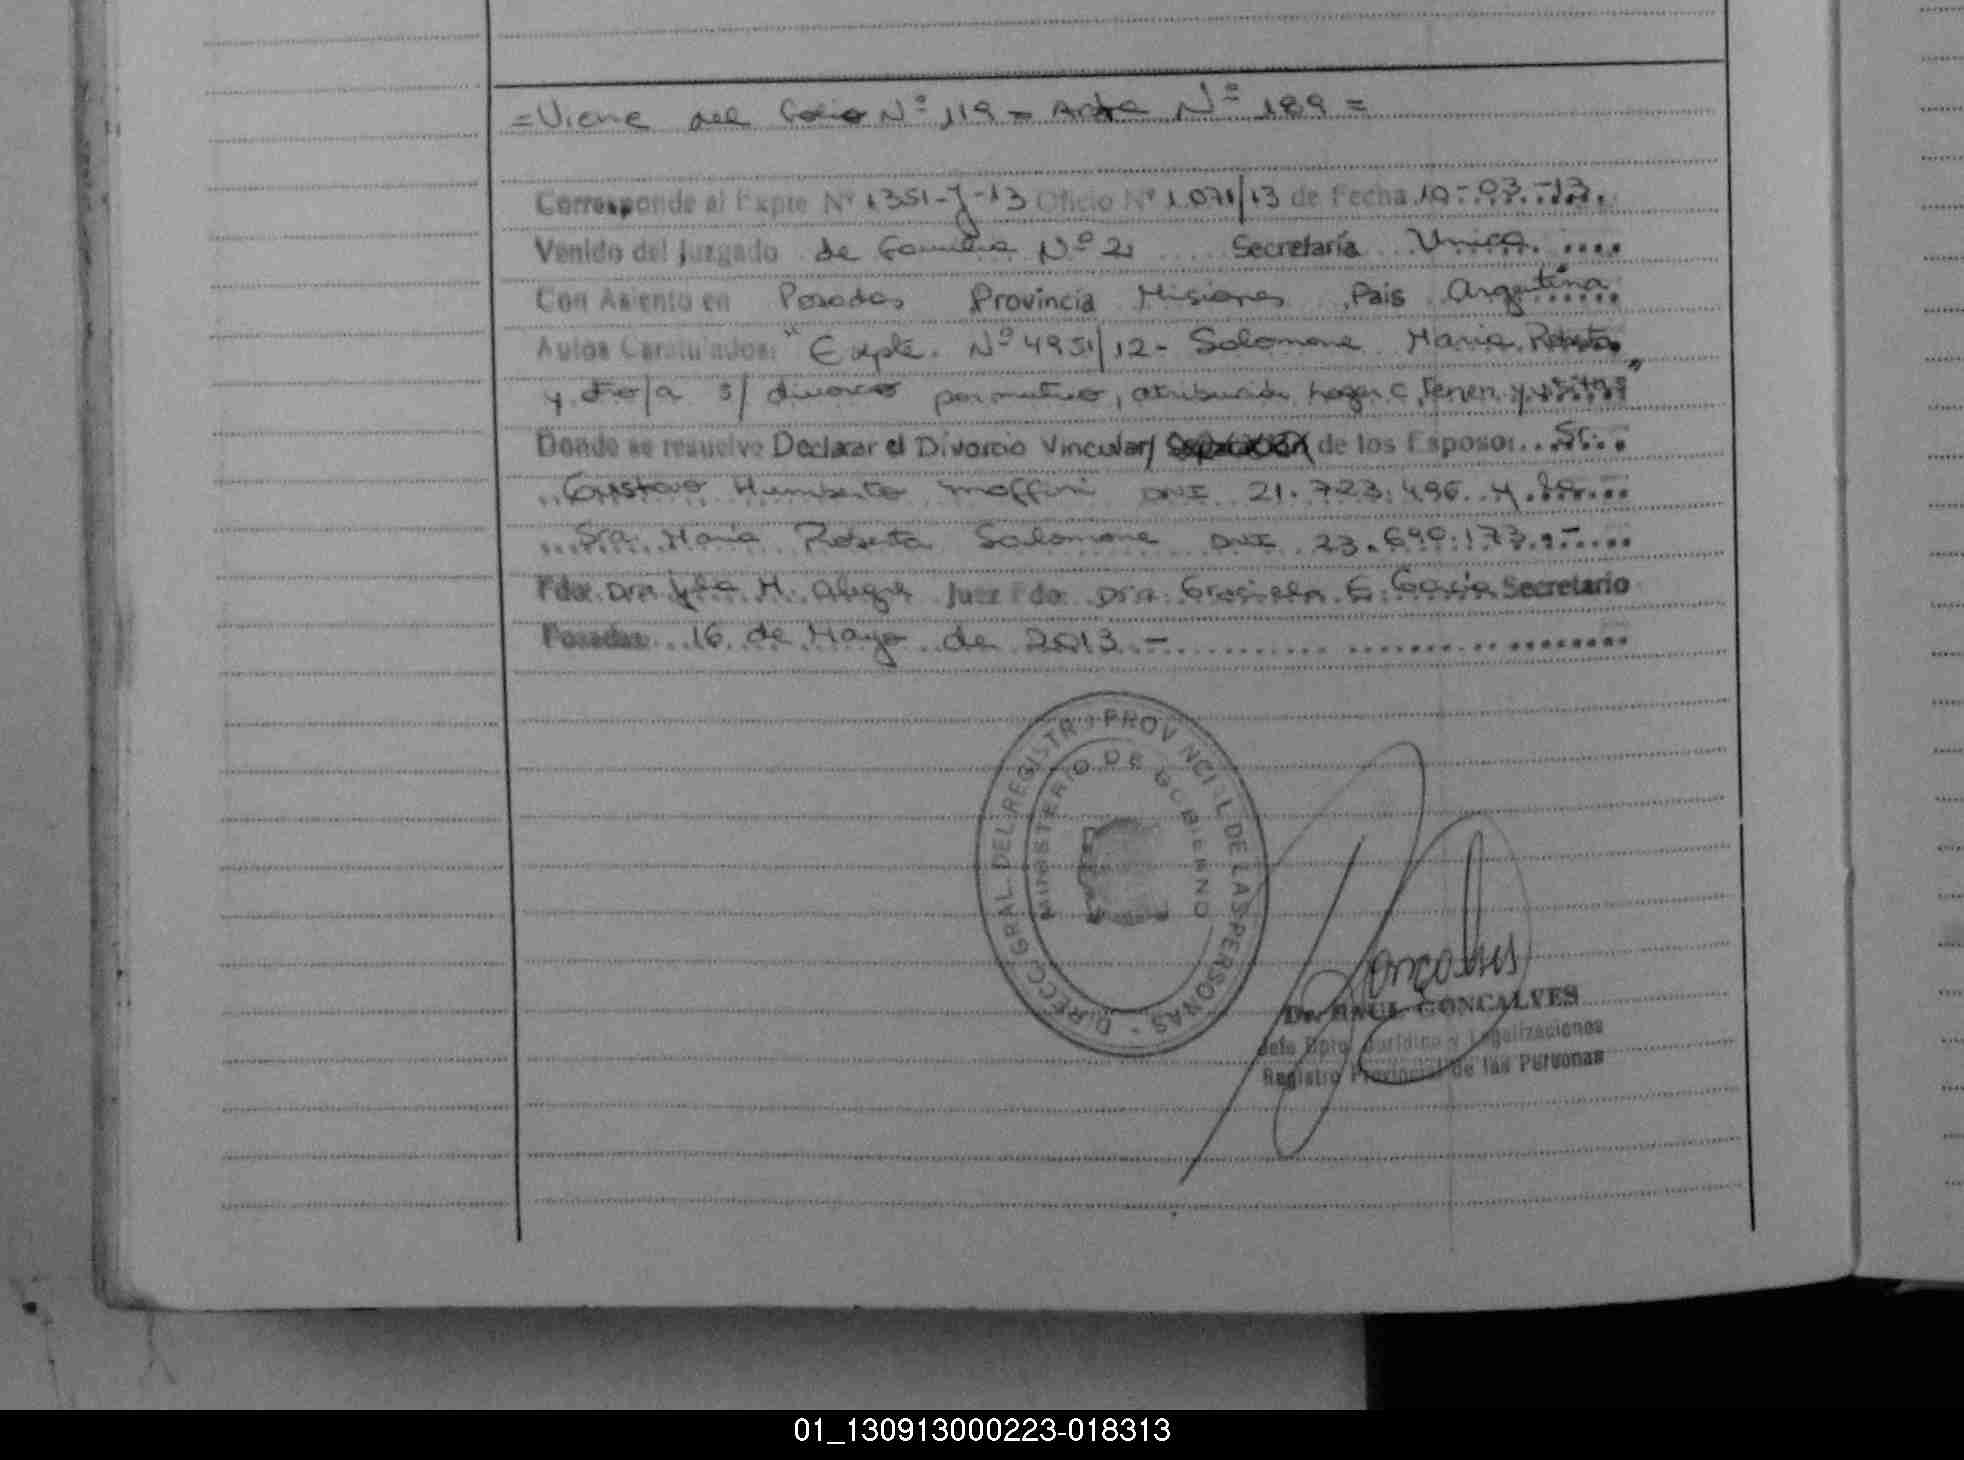 =Viene del Folio Nº 119 = Acta Nº 189 =
Corresponde al Expte Nº 1351-J-13 Oficio Nº 1.071/13 de Fecha 10-03-13.
Venido del Juzgado de Familia Nº 2 Secretaría Unica
Con Asiento en Posadas Provincia Misiones País Argentina
Autos Caratulados: "Expte. Nº 4951/12- Salomone Maria Roberta
y otro/a s/ divorcio por mutuo, atribución hogar c, Tenen. y visitas"
Donde se resuelve Declarar el Divorcio Vincular/ Separación de los Esposos Sr.
Gustavo Humberto DNI 21.723.496 y la
Sra. Maria Roberta Salomone DNI 23.690.173.-
Fdo: Dra. M. Alegre Juez Fdo: Dra. Graciela E. Secretario
Posadas 16 de Mayo de 2013.-
DIRECC. GRAL. DEL REGISTRO PROVINCIAL DE LAS PERSONAS -
MINISTERIO DE GOBIERNO
Goncalves
Dr. RAUL GONCALVES
Jefe Dpto. Jurídico y Legalizaciones
Registro Provincial de las Personas
01_130913000223-018313